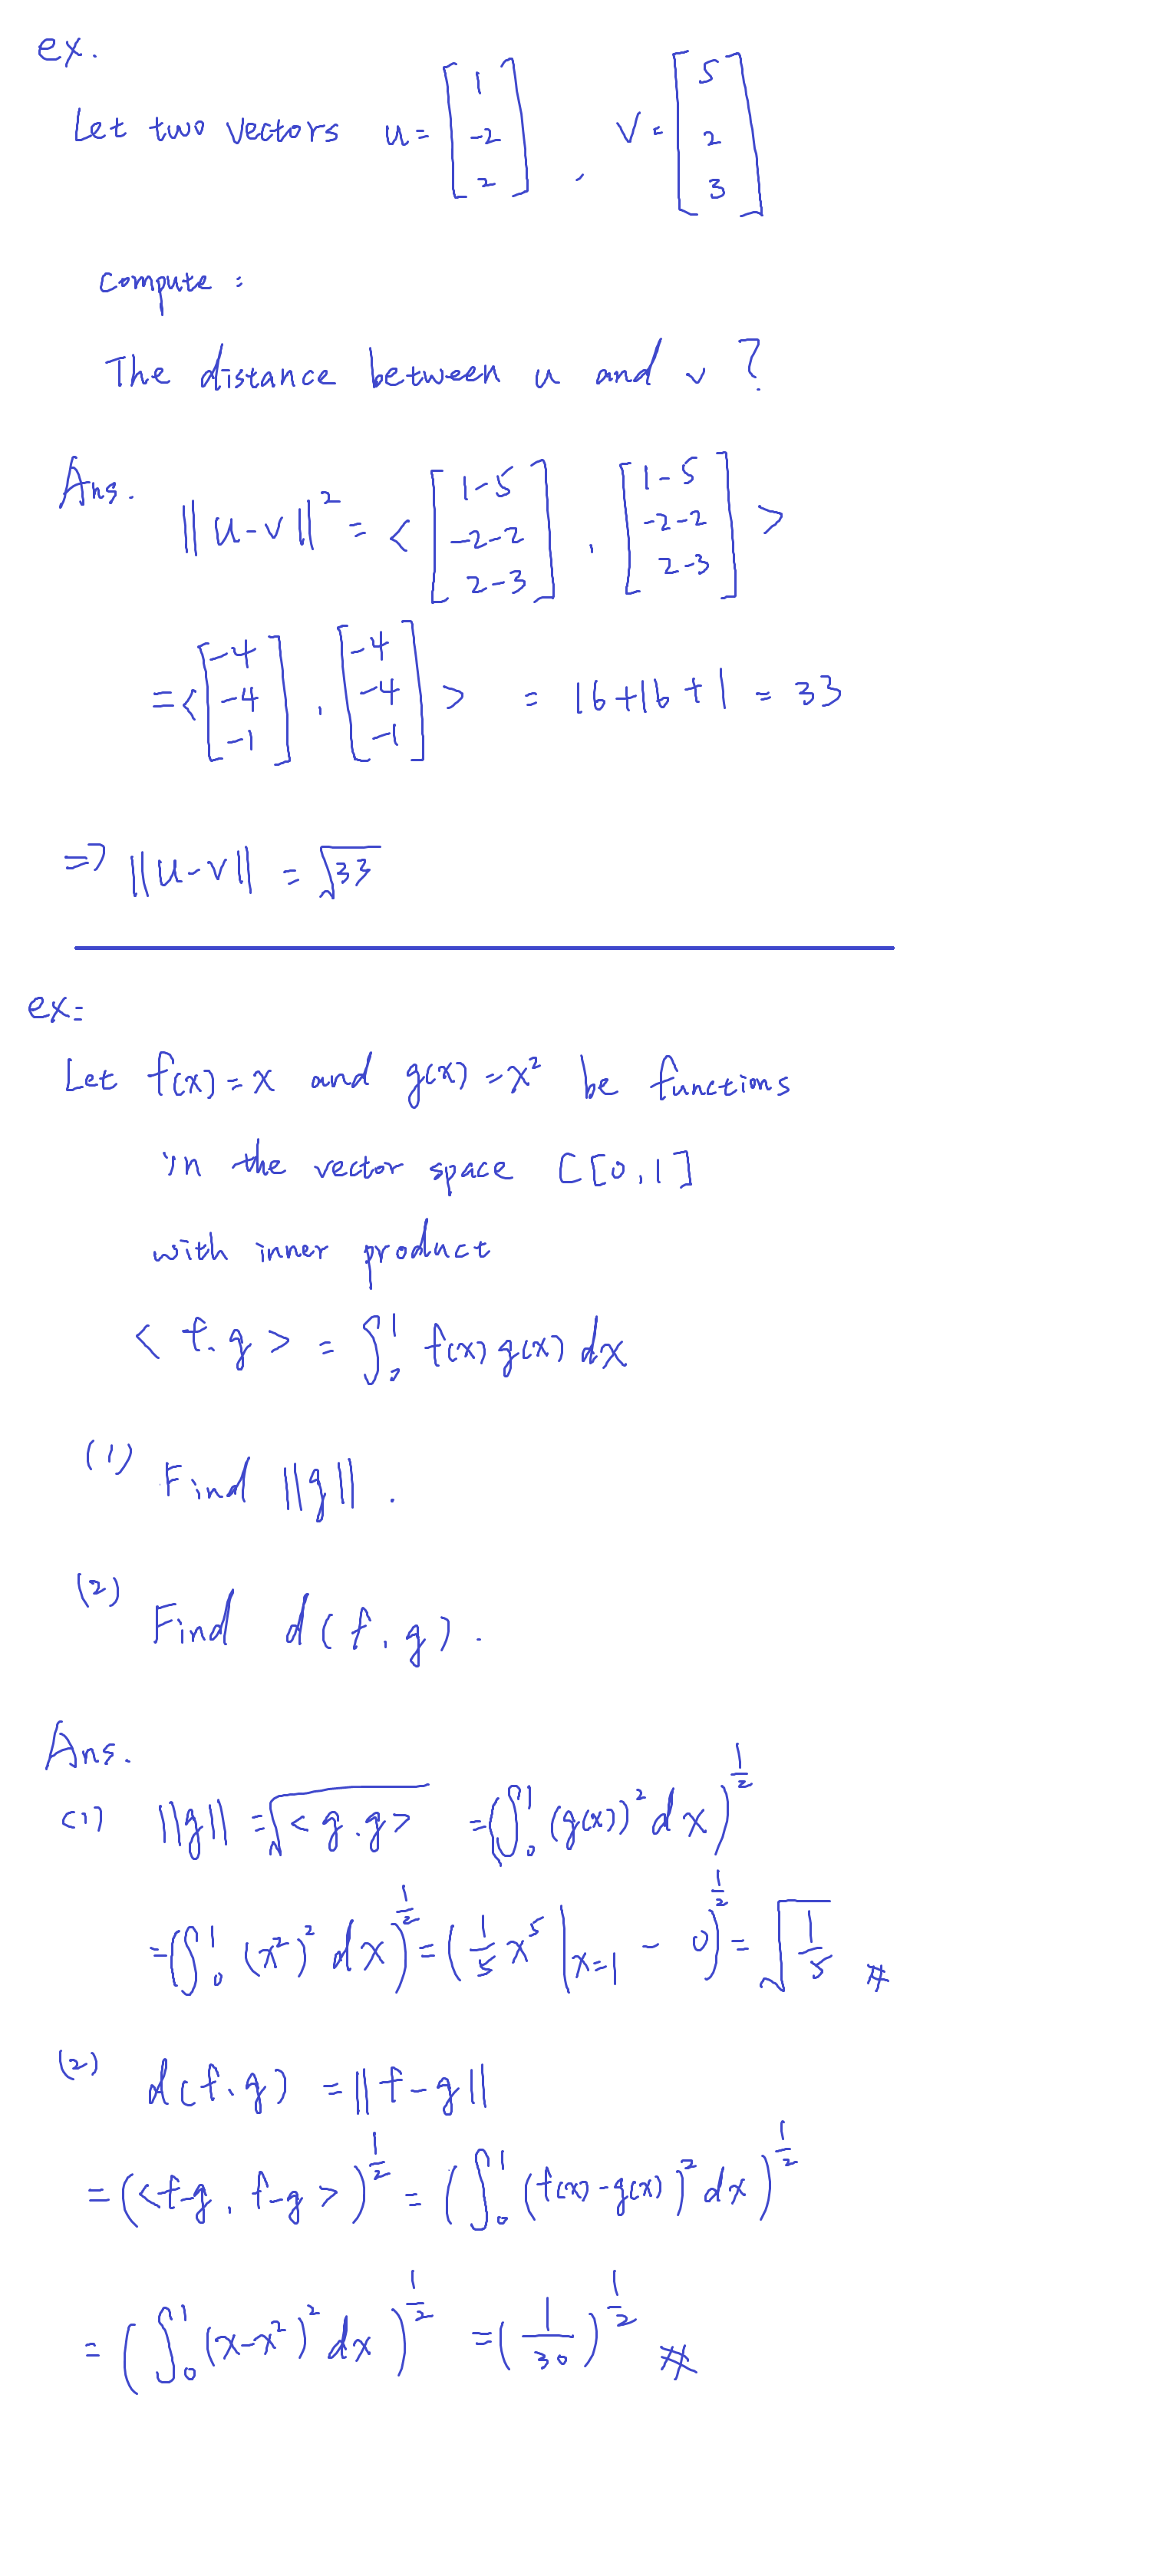 ex.
Let two vectors u = [1 -2 2] , v = [5 2 3]
compute :
The distance between u and v ?
Ans. ||u-v||² = < [1-5 -2-2 2-3] , [1-5 -2-2 2-3] >
= < [-4 -4 -1] , [-4 -4 -1] > = 16+16+1 = 33
⇒ ||u-v|| = √33
ex:
Let f(x) = x and g(x) = x² be functions
in the vector space C[0,1]
with inner product
< f, g > = ∫₀¹ f(x) g(x) dx
(1) Find ||g|| .
(2) Find d(f, g) .
Ans.
(1) ||g|| = √<g, g> = (∫₀¹ (g(x))² dx)^(1/2)
= (∫₀¹ (x²)² dx)^(1/2) = (1/5 x⁵ |x=1 - 0)^(1/2) = √(1/5) #
(2) d(f, g) = ||f-g||
= (<f-g, f-g>)^(1/2) = (∫₀¹ (f(x)-g(x))² dx)^(1/2)
= (∫₀¹ (x-x²)² dx)^(1/2) = (1/30)^(1/2) #